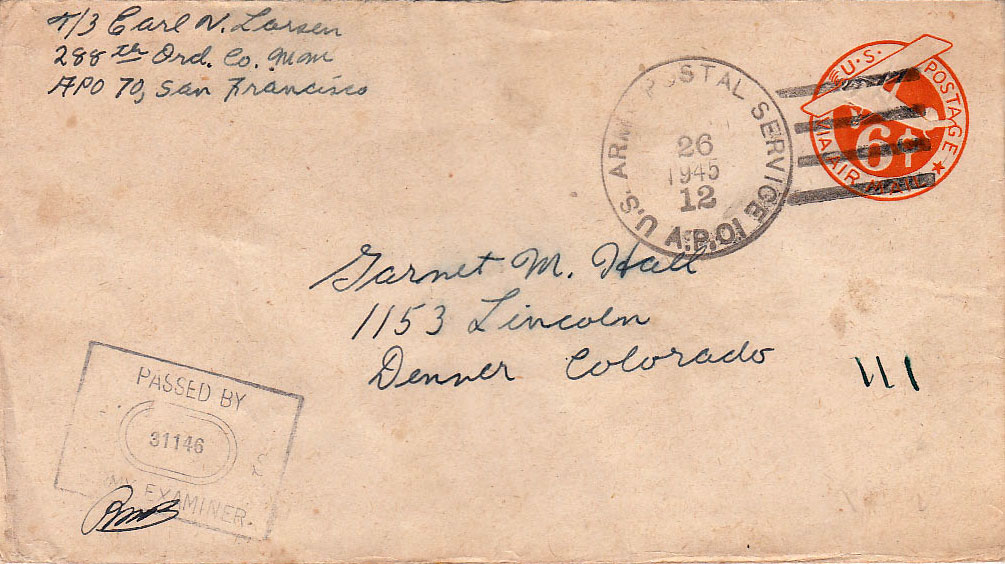 T/3 Carl N. Larsen
288th Ord. Co. MM
APO 70, San Francisco
U.S. ARMY POSTAL SERVICE
A.P.O.
26
1945
12
U.S. POSTAGE
6¢
VIA AIR MAIL
Garnet M. Hall
1153 Lincoln
Denver Colorado
PASSED BY
31146
EXAMINER.